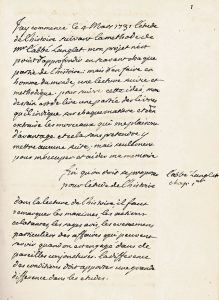 1
J'ay commencé le 2 Mars 1731 l'etude
de l'histoire suivant la methode de
Mr l'abbé Langlet mon projet n'est
point d'approfondir en travers chaque
partie de l'histoire, mais d'en faire en
homme du monde, une lecture suivie et
methodique, pour suivre cette idée, mon
dessein est de lire une partie des livres
qu'il indique sur chaque matiere et d'en
extraire les morceaux qui me plairont
d'avantage et cela sans pretendre y
mettre aucune suite, mais seulement
pour m'occuper et aider ma memoire
fin qu'on doit se proposer
pour l'etude de l'histoire
l'abbé Langlet
chap. 1er
dans la lecture de l'histoire, il faut
remarquer les maximes, les actions
eclatantes, les sages avis, les evenemens
particuliers des affaires qui peuvent
servir quand on s'engage dans de
pareilles conjonctures. La difference
des conditions doit apporter une grande
difference dans les etudes.